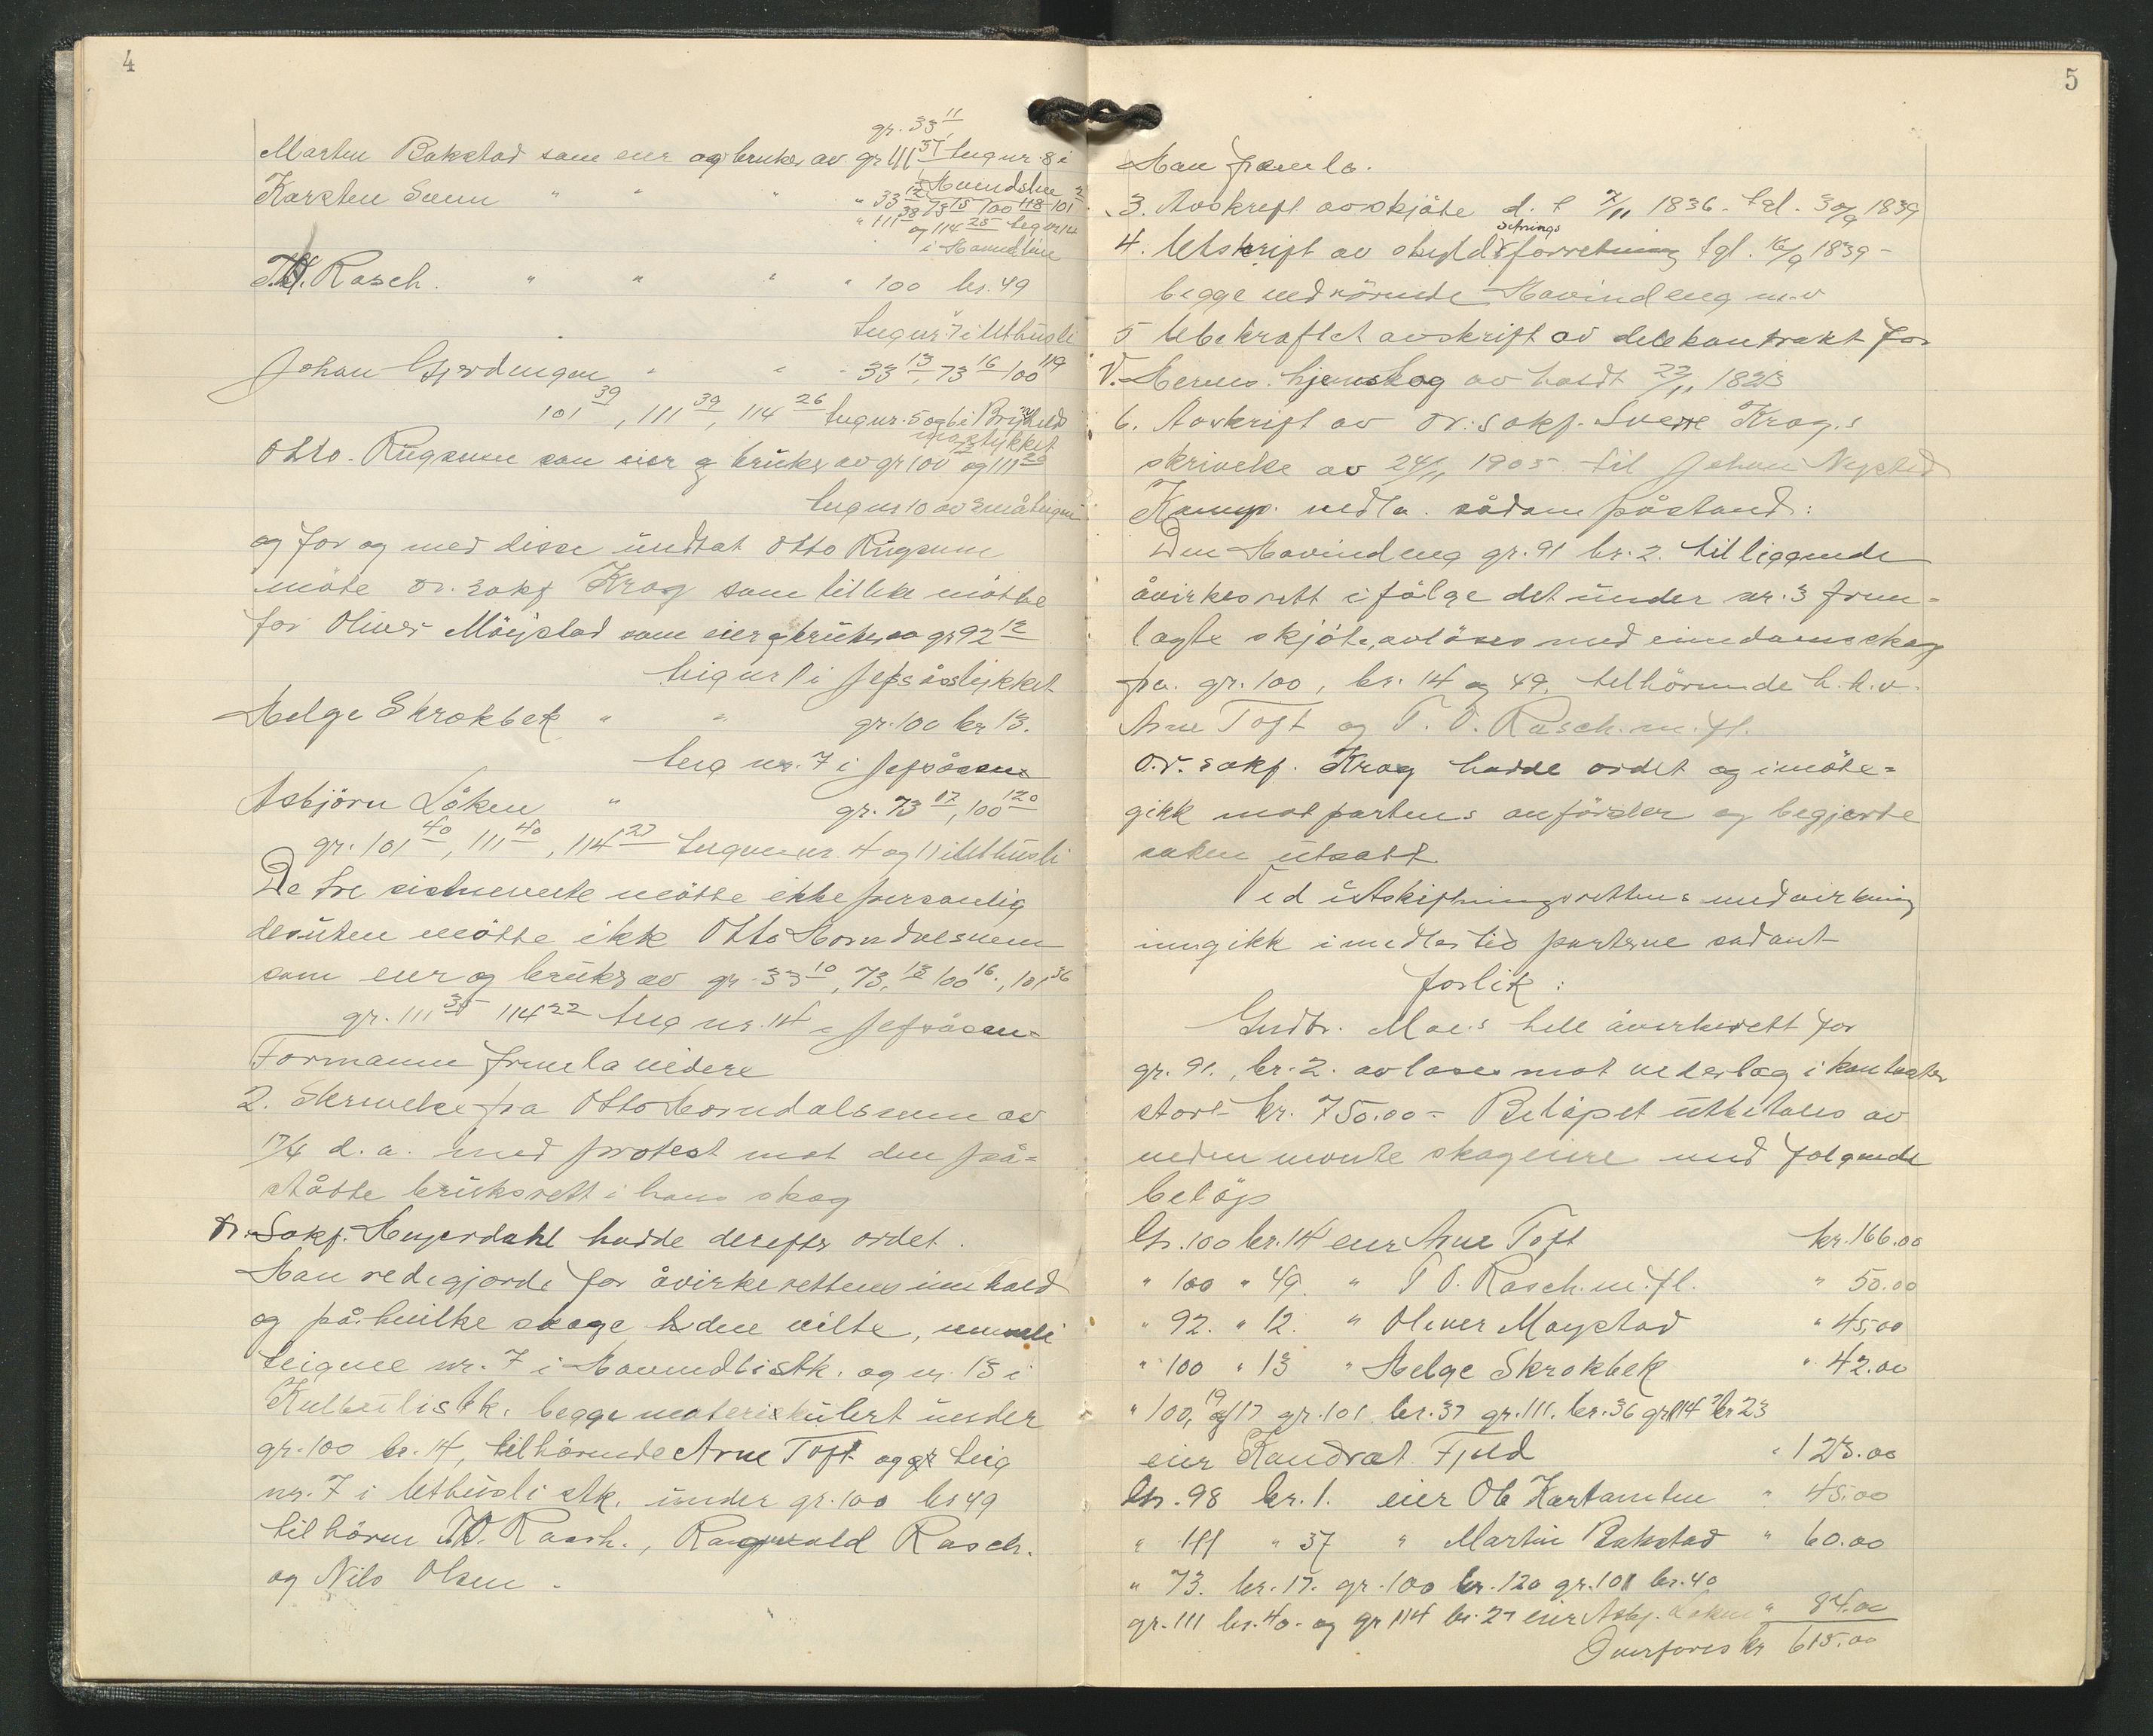 4
gr. 33 11
Martin Bakstad som eier og bruker av gr 111 37 teig nr. 8 i
Havindslien
Karsten Suun " " " " 33 12 73 15 100 118 101
" 111 38 og 114 25 teig nr 12
i Havindlien
T.O. Rasch. " " " " 100 br. 49
teig nr. 7 i Uthusli
Johan Gjerdingen " " " 33 13, 73 16 100 119
101 39, 111 39, 114 26 teig nr. 5 og 6 i
stykket
Otto Rugsveen som eier og bruker av gr 100 og 111
teig nr 10 av småteigene
og for og med disse undtat Otto Rugsveen
møte or. sakf Krog som tillike møtte
for Oliver Møystad som eier og bruker av gr 92 12
teig nr 1 i Jefsåsstykket
Helge Skrokbek " " gr. 100 br 13.
teig nr. 7 i Jefsåsen
Asbjörn Löken " gr. 73 17, 100 120
gr. 101 40, 111 40, 114 27 teigene nr. 4 og 11 i Uthusli
De tre sistnevnte møtte ikke personlig
desuten møtte ikk Otto Horndalsveen
som eier og bruker av gr. 33 10, 73, 13 100 16., 101 36
gr. 111 35 114 22 teig nr. 14 i Jefsåsen-
Formannen fremla videre
2. Skrivelse fra Otto Horndalsveen av
17/4 d. a. med protest mot den på-
ståtte bruksrett i hans skog
Or. Sakf. Heyerdahl hadde derefter ordet.
Han redegjorde for åvirkerettens innhold
og på hvilke skoge den vilte, nemlig
teigene nr. 7 i Havindlistk. og nr. 13 i
Kulbulistk. begge materikulert under
gr. 100 br. 14, tilhörende Arne Toft og teig
nr. 7 i Uthusli stk. under gr. 100 br 49
tilhören T.O. Rasch., Ragnvald Rasch.
og Nils Olsen.
5
Han fremla.
3. Avskrift av skjöte d. t 7/11 1836. tgl. 30/9 1839
4. Utskrift av skyldsetningsforretning tgl. 16/9 1839-
begge vedrörende Havindeng m.v
5 Ubekraftet avskrift av delekontrakt for
V. Herens hjemskog av holdt 22/11 1823
6. Avskrift av or. sakf. Sverre Krog.s
skrivelse av 24/11 1905 til Johan Nysted
Kamp. nedla. sådan påstand:
Den Havindeng gr. 91 br. 2. tilliggende
åvirkesrett i fölge det under nr. 3 frem-
lagte skjöte, avlöses med eiendomsskog
fra. gr. 100, br. 14 og 49. tilhörende h.h.v.
Arne Toft og T. O. Rasch. m. fl.
o.r. sakf. Krog hadde ordet og imöte-
gikk motpartens anförsler og begjerte
saken utsatt
Ved utskiftningsrettens medvirkning
inngikk imidlertid partene sådant
forlik:
Gudbr. Moe.s hele åvirkerett for
gr. 91., br. 2. avloses mot vederlag i kontanter
stort kr. 750.00 - Belöpet utbetales av
nedennevnte skogeiere med folgende
belöp
Gr. 100 br. 14 eier Arne Toft kr. 166.00
" 100 " 49 " T O. Rasch. m. fl. " 50.00
" 92. " 12. " Oliver Moystad " 45,00
" 100 " 13 " Helge Skrokbek " 42.00
" 100, 19 og 17 gr. 101 br. 37 gr. 111. br. 36 gr 114 br 23
eier Kondrat Fjeld " 123.00
Gr. 98 br. 1. eier Ole Kartomten " 45.00
" 111 " 37 " Martin Bakstad " 60.00
" 73. br. 17. gr. 100 br. 120 gr. 101 br. 40
gr. 111 br. 40. og gr 114 br. 27 eier Asbj. Löken " 84.00
Overfores kr 615.00